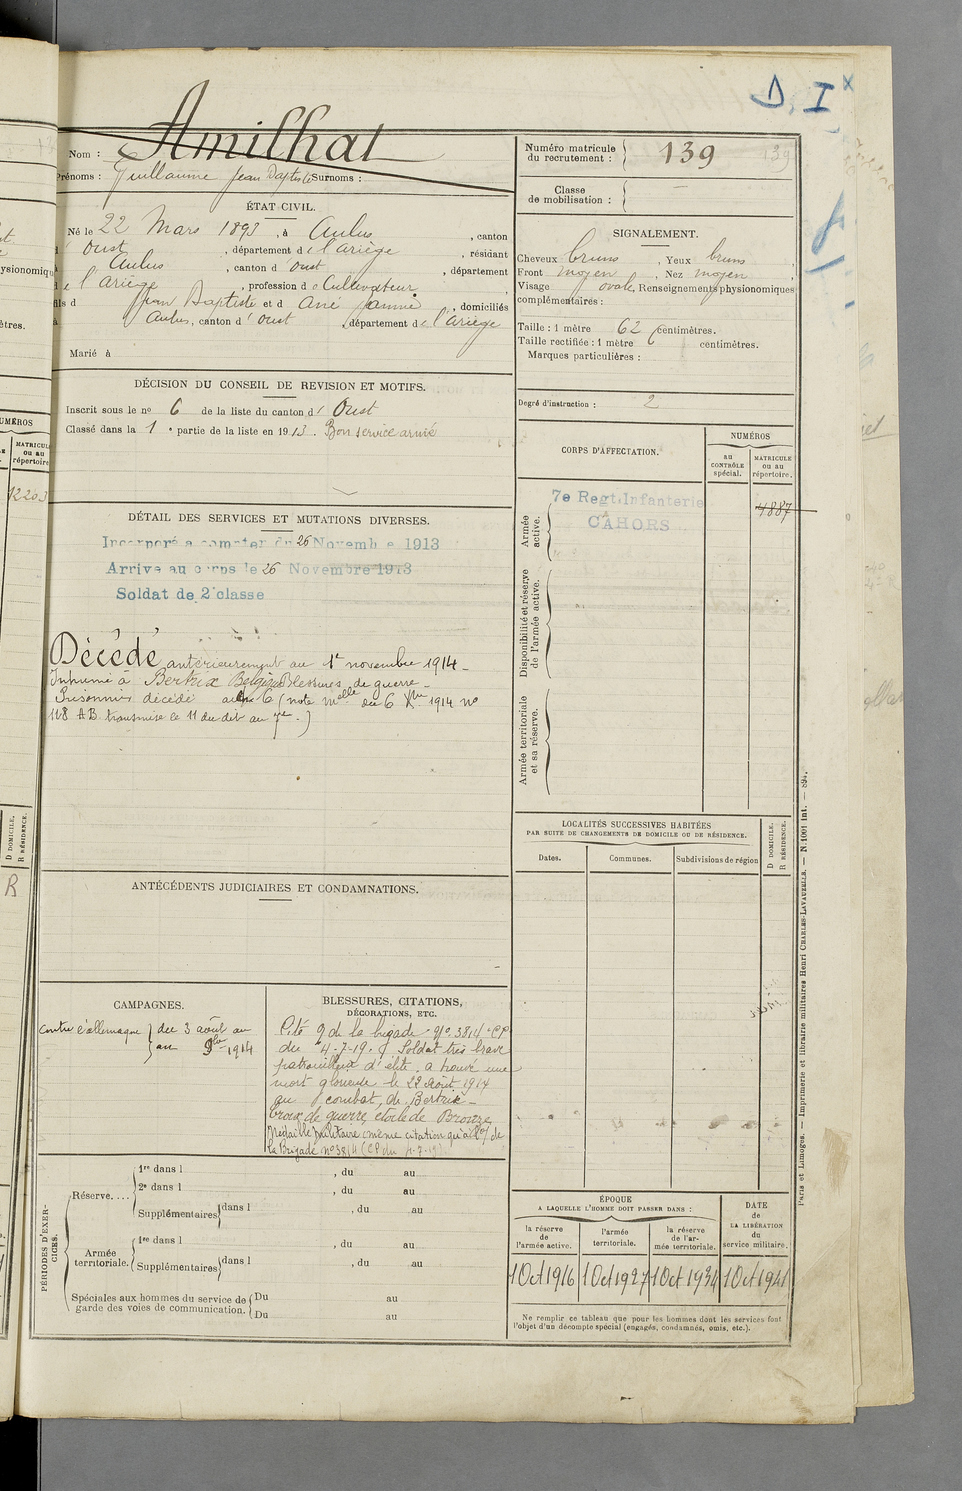 D. I
Nom : Amilhat
Prénoms : Guillaume Jean Baptiste Surnoms :
Numéro matricule du recrutement : 139
Classe de mobilisation :
ÉTAT CIVIL.
Né le 22 Mars 1893, à Aulus, canton
d'Oust, département de l'Ariège, résidant
à Aulus, canton d'Oust, département
de l'Ariège, profession de Cultivateur,
fils de Jean Baptiste et d'Ané Jeanne, domiciliés
à Aulus, canton d'Oust, département de l'Ariège
Marié à
SIGNALEMENT.
Cheveux bruns, Yeux bruns
Front moyen, Nez moyen
Visage ovale, Renseignements physionomiques
complémentaires :
Taille : 1 mètre 62 centimètres.
Taille rectifiée : 1 mètre centimètres.
Marques particulières :
Degré d'instruction : 2
DÉCISION DU CONSEIL DE REVISION ET MOTIFS.
Inscrit sous le no 6 de la liste du canton d'Oust
Classé dans la 1e partie de la liste en 1913. Bon service armé
DÉTAIL DES SERVICES ET MUTATIONS DIVERSES.
Incorporé a compter du 26 Novembre 1913
Arrivé au corps le 26 Novembre 1913
Soldat de 2e classe
Décédé antérieurement au 1er novembre 1914 -
Inhumé à Bertrix Belgique Blessures de guerre -
Prisonnier décédé (note melle du 6 Xbre 1914 no
118 AB transmise le 11 du dit au 7e.)
CORPS D'AFFECTATION.
NUMÉROS
au CONTRÔLE spécial.
MATRICULE ou au répertoire.
Armée active.
7e Regt Infanterie
CAHORS
4887
Disponibilité et réserve de l'armée active.
Armée territoriale et sa réserve.
LOCALITÉS SUCCESSIVES HABITÉES
PAR SUITE DE CHANGEMENTS DE DOMICILE OU DE RÉSIDENCE.
Dates.
Communes.
Subdivisions de région
D DOMICILE.
R RÉSIDENCE.
ANTÉCÉDENTS JUDICIAIRES ET CONDAMNATIONS.
CAMPAGNES.
Contre l'allemagne du 3 août au
au 9bre 1914
BLESSURES, CITATIONS,
DÉCORATIONS, ETC.
Cité g de la brigade no 3814 CP
du 4-7-19. Soldat très brave
patrouilleur d'élite, a trouvé une
mort glorieuse le 22 Août 1914
au combat de Bertrix -
Croix de guerre étoile de Bronze
Médaille Militaire même citation qu'à l'o/ de
la Brigade no 3814 (CP du 4-7-19)
PÉRIODES D'EXERCICES.
Réserve....
1re dans l , du au
2e dans l , du au
Supplémentaires dans l , du au
Armée territoriale.
1re dans l , du au
Supplémentaires dans l , du au
Spéciales aux hommes du service de garde des voies de communication.
Du au
Du au
ÉPOQUE
A LAQUELLE L'HOMME DOIT PASSER DANS :
la réserve de l'armée active.
l'armée territoriale.
la réserve de l'armée territoriale.
DATE de LA LIBÉRATION du service militaire.
1 Oct 1916
1 Oct 1927
1 Oct 1934
1 Oct 1941
Ne remplir ce tableau que pour les hommes dont les services font
l'objet d'un décompte spécial (engagés, condamnés, omis, etc.).
Paris et Limoges. — Imprimerie et librairie militaires Henri CHARLES-LAVAUZELLE. — N. 1001 Int. — 894.
NUMÉROS
MATRICULE
ou au
répertoire.
12203
D DOMICILE.
R RÉSIDENCE.
R